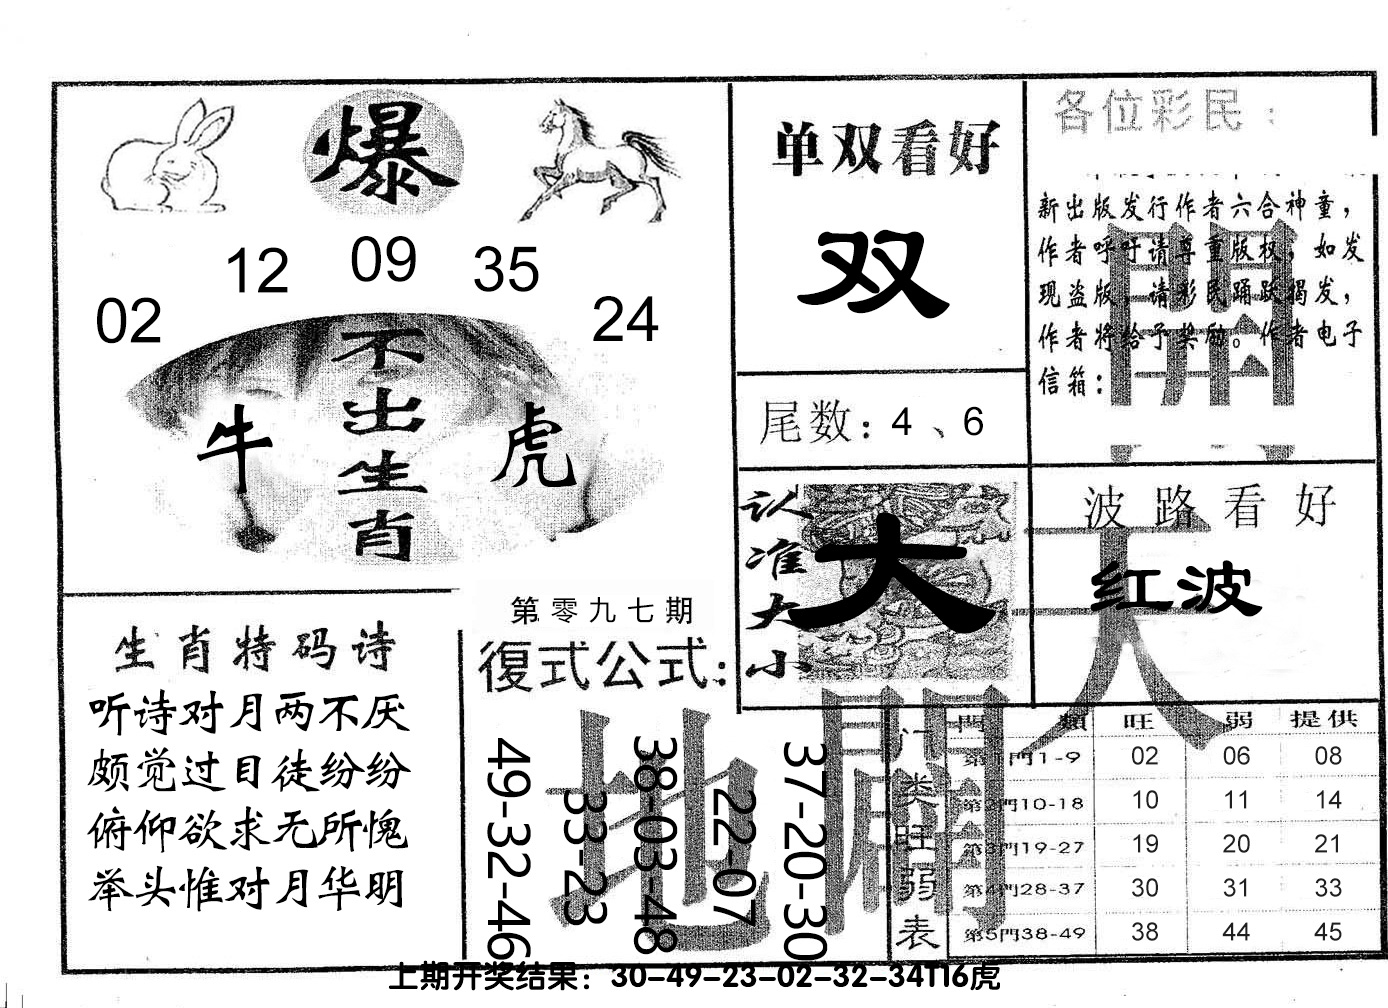 爆
12 09 35
02 24
不出生肖
牛 虎
单双看好
双
尾数：4、6
各位彩民：
新出版发行作者六合神童，
作者呼吁请尊重版权，如发
现盗版，请彩民踊跃揭发，
作者将给予奖励。作者电子
信箱：
認准大小
大
波路看好
红波
天
開
地
闢
生肖特码诗
听诗对月两不厌
颇觉过目徒纷纷
俯仰欲求无所愧
举头惟对月华明
第零九七期
復式公式：
49-32-46
33-23
38-03-48
22-07
37-20-30
门类旺弱表
門類 旺 弱 提供
第1門1-9 02 06 08
第2門10-18 10 11 14
第3門19-27 19 20 21
第4門28-37 30 31 33
第5門38-49 38 44 45
上期开奖结果：30-49-23-02-32-34T16虎